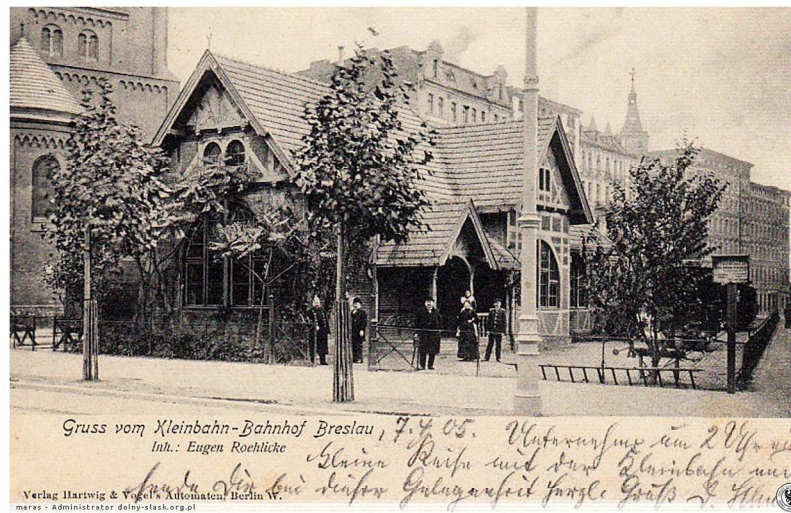 Gruss vom Kleinbahn-Bahnhof Breslau,
Inh.: Eugen Roehlicke
7.4.05. Unternehme um 2 Uhr
kleine Reise mit der Kleinbahn und
sende Dir bei dieser Gelegenheit herzl. Gruß
Verlag Hartwig & Vogel's Automaten, Berlin W.
maras - Administrator dolny-slask.org.pl